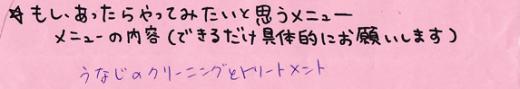 ☆もし、あったらやってみたいと思うメニュー
メニューの内容(できるだけ具体的にお願いします)
うなじのクリーニングとトリートメント